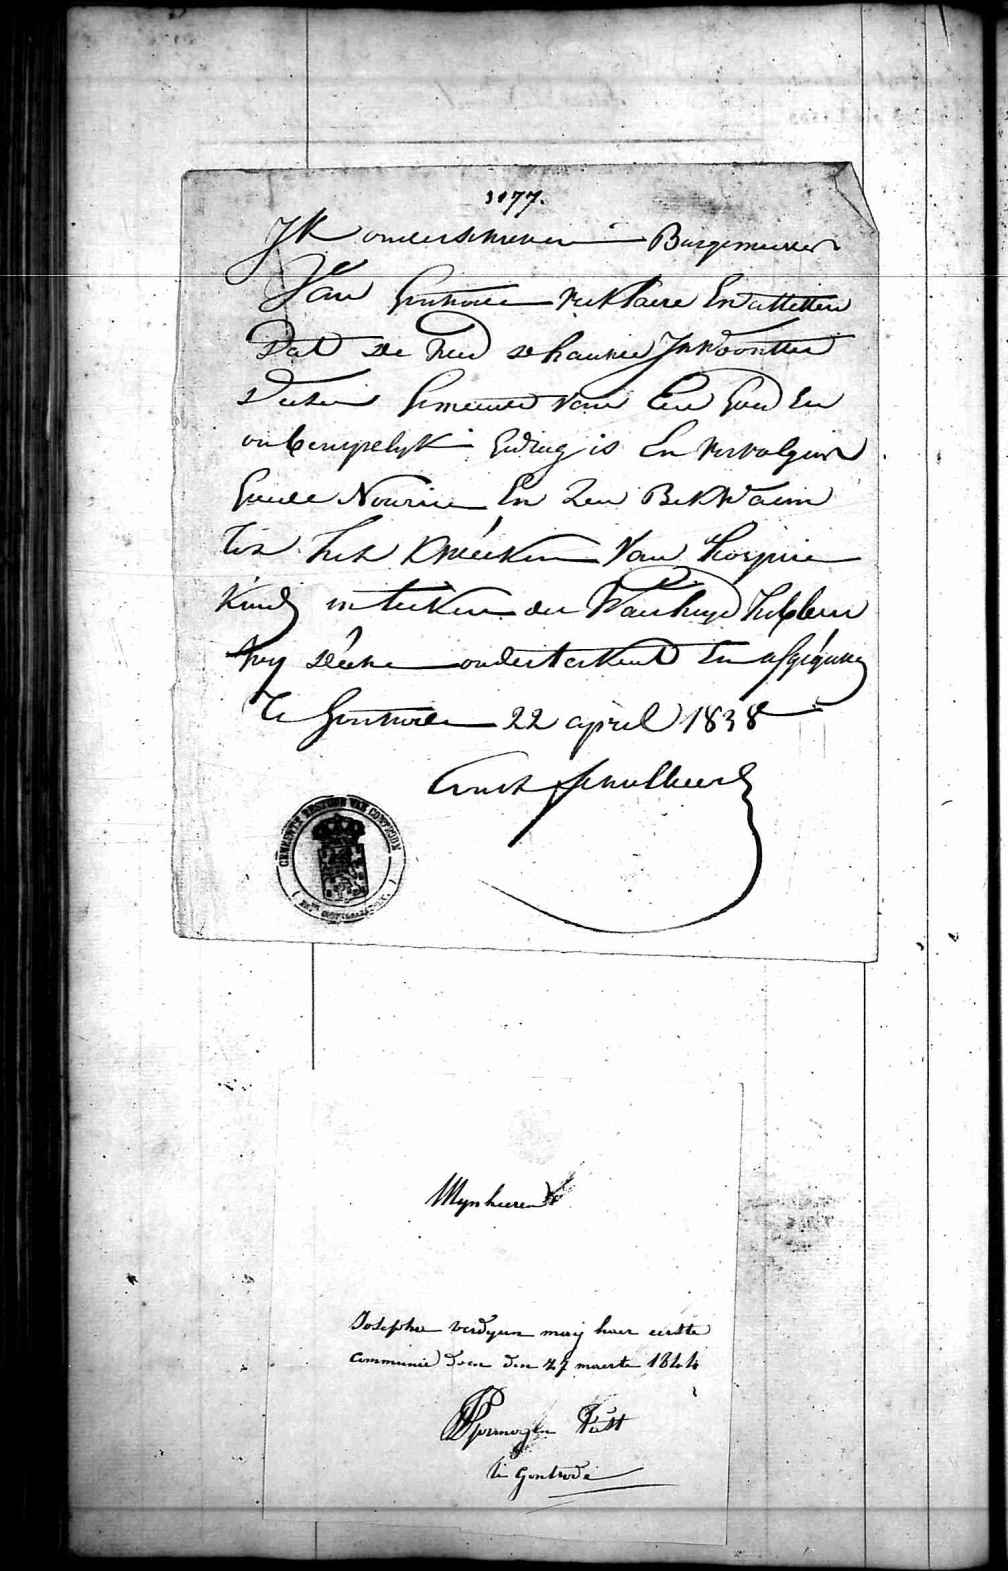 3077.
Ik onderschreven Burgemeester
Van Gontrode verklaere En attesteere
Dat de
Deeser Gemeente van Een Goed En
onberispelyk Gedrag is En vervolgens
Goede Nourice En Zeer Bekwaem
tot het kweeken Van hospice
Kind in teeken der Waerheyd hebben
wy deese ondertekent En afgegeven
te Gontrode 22 april 1838
GEMEENTE BESTUUR VAN GONTRODE
Mynheeren
Josephe verdyen mag haer eerste
communie doen den 27 maerte 1844
Past
te Gontrode